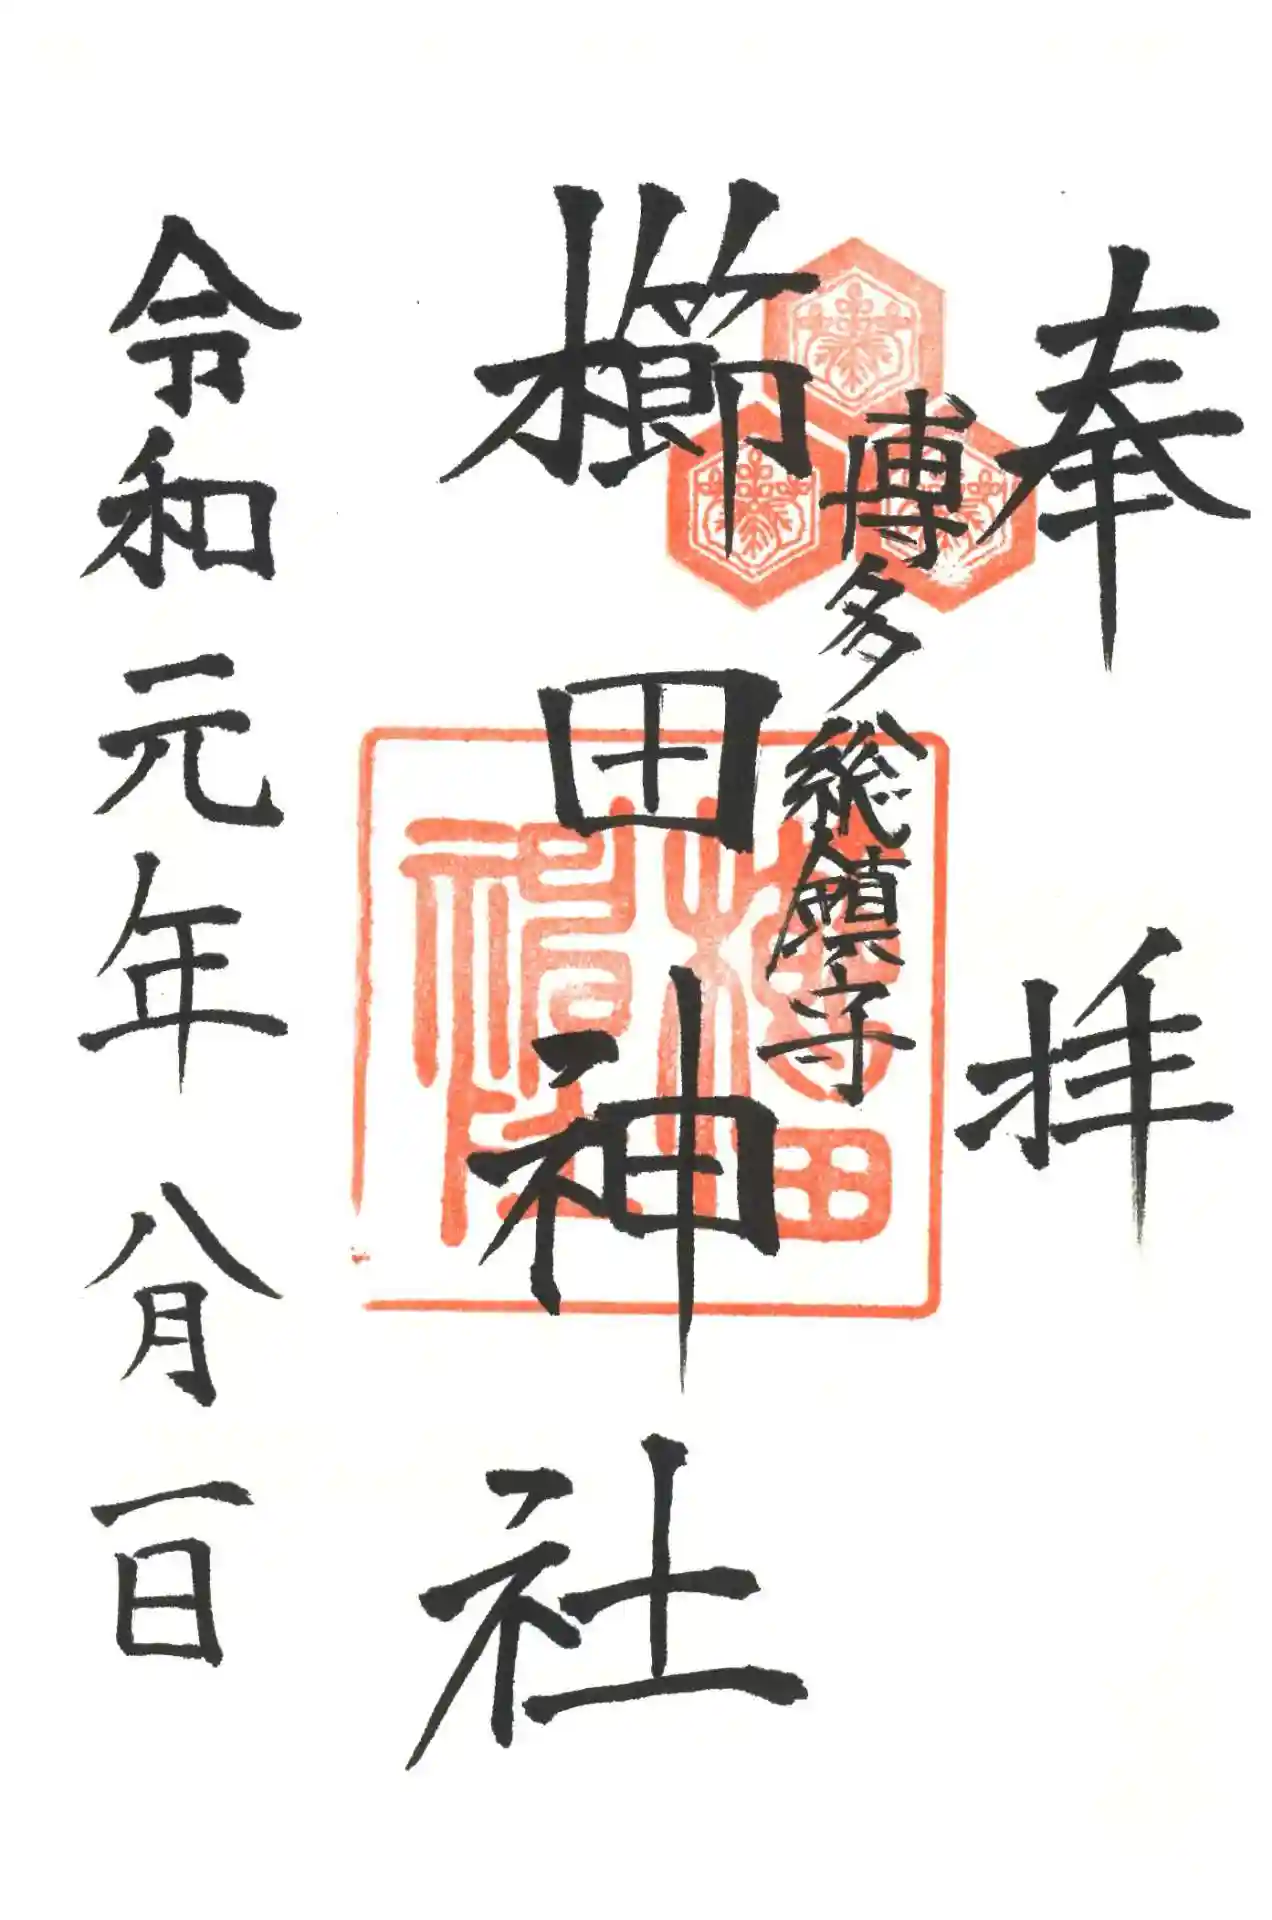 奉拝
博多総鎮守
櫛田神社
令和元年八月一日